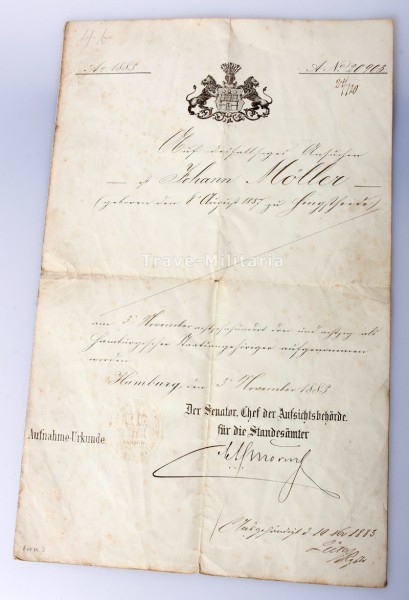 Ao 1883.
A. No
Auf desfallsiges Ansuchen
ist Johann Möller
(geboren den August 1857 zu
Trave-Militaria
am 5 November achtzehnhundert drei und achtzig als
Hamburgischer Staatsangehöriger aufgenommen
worden.
Hamburg, den 5 November 1883
Der Senator, Chef der Aufsichtsbehörde
für die Standesämter
Aufnahme-Urkunde
Ausgehändigt d. 10 Nov 1883